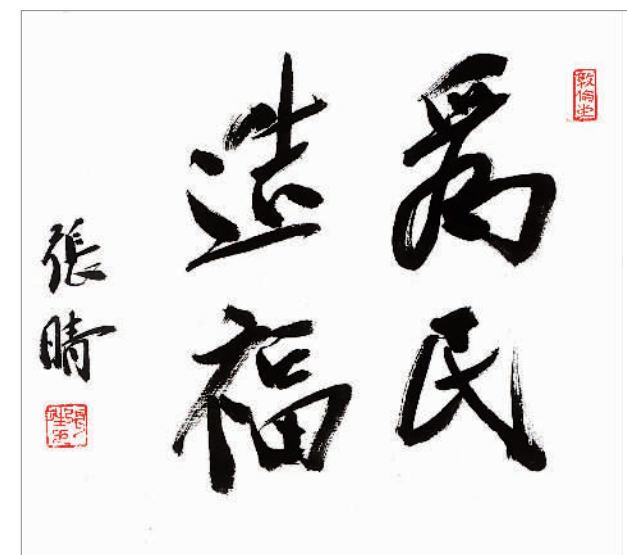 爲民
造福
張晴